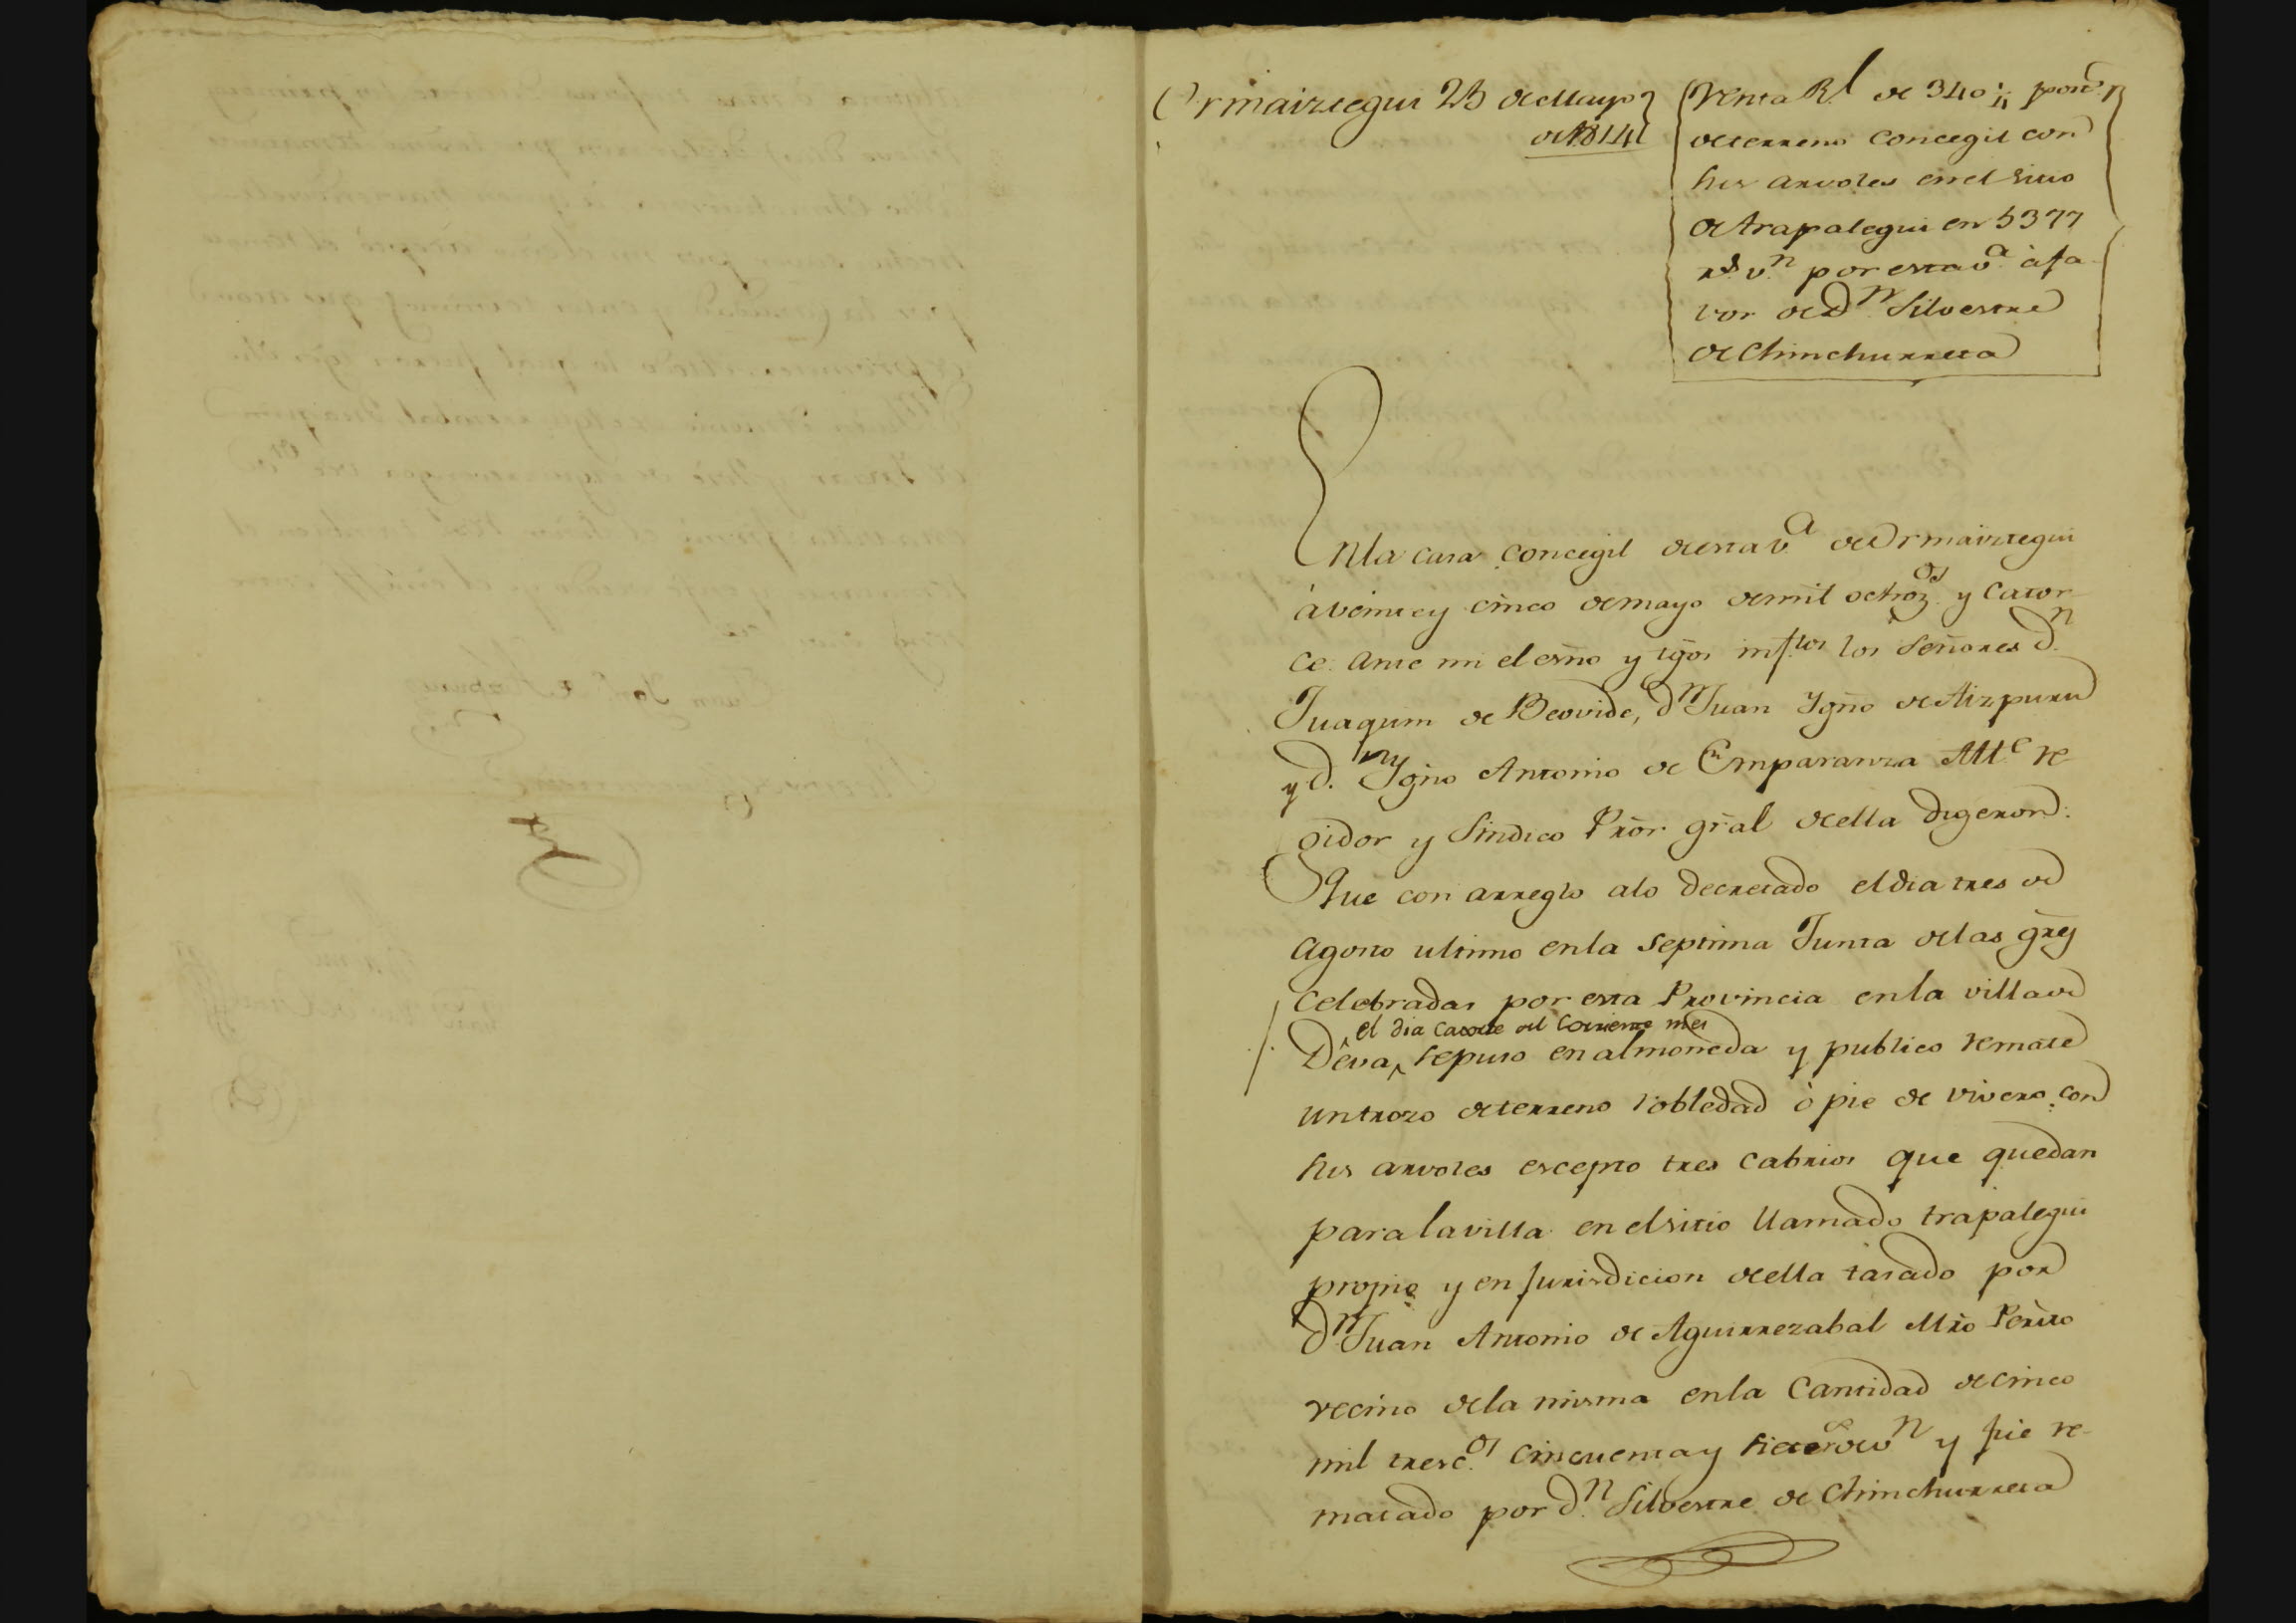 Ormaiztegui 25 de Mayo
de 1814
Venta Rl de 340 1/4 pors
de terreno concegil con
sus arvoles en el sitio
de trapalegui en 5377
rs. vn. por esta va. à fa-
vor de Dn. Silvestre
de Chinchurreta
En la casa concegil de esta va. de Ormaiztegui
à veinte y cinco de mayo de mil ochozos. y cator-
ce: ante mi el esno y tgos infros los Señores Dn.
Juaquin de Beovide, Dn Juan Ygno de Aizpuru
y Dn. Ygno Antonio de Emparanza Alle. re-
gidor y Sindico Pror. gral de ella digeron:
Que con arreglo a lo decretado el dia tres de
Agosto ultimo en la septima Junta de las gres
celebradas por esta Provincia en la villa de
el dia catorce del corriente mes
Deva, se puso en almoneda y publico remate
un trozo de terreno robledad ò pie de vivero con
sus arvoles escepto tres cabrios que quedan
para la villa en el sitio llamado trapalegui
propio y en jurisdicion de ella tasado por
Dn Juan Antonio de Aguirrezabal Mro Perito
vecino de la misma en la cantidad de cinco
mil tresc.os cincuenta y siete rs de vn y fue re-
matado por Dn. Silvestre de Chinchurreta